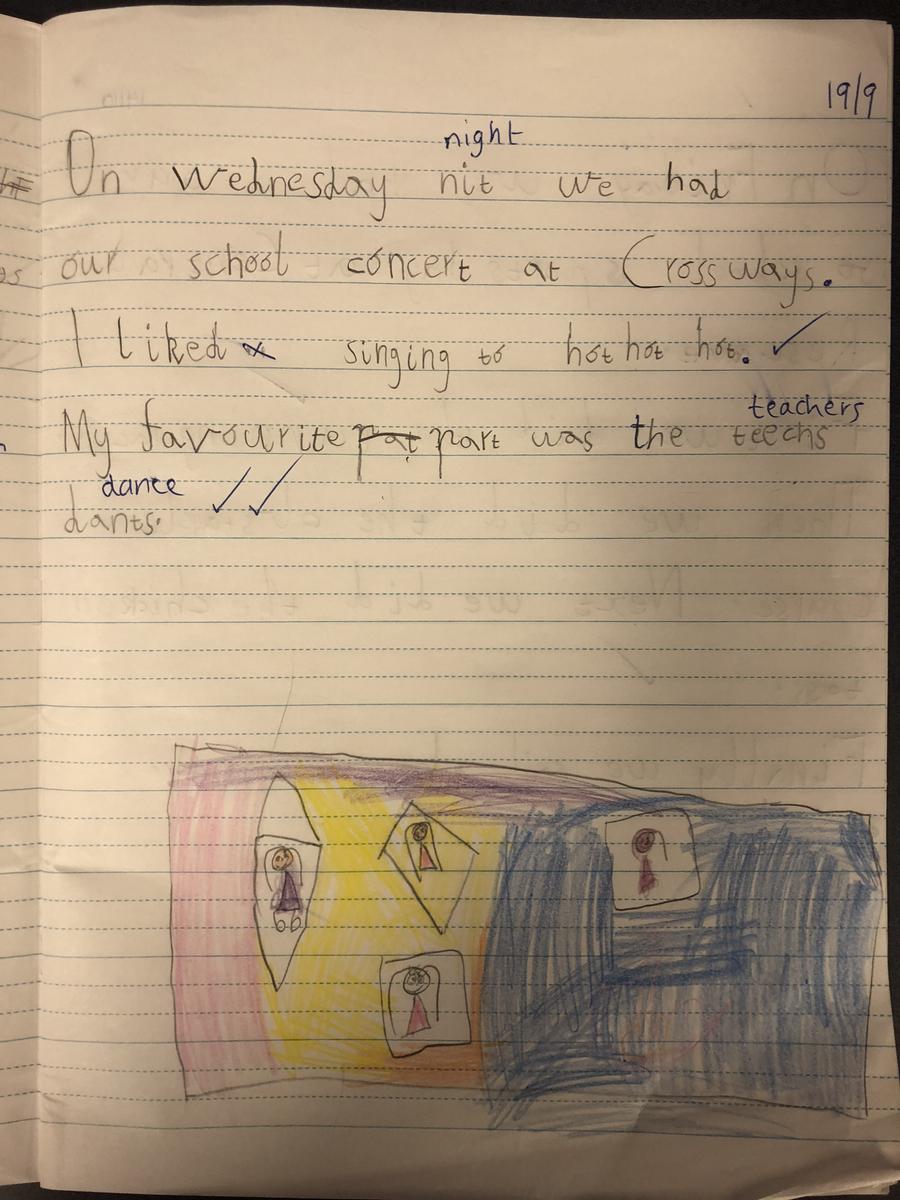 19/9
night
On Wednesday nit we had
our school concert at Crossways.
I liked singing to hot hot hot.
teachers
My favourite pat part was the teechs
dance
dants.